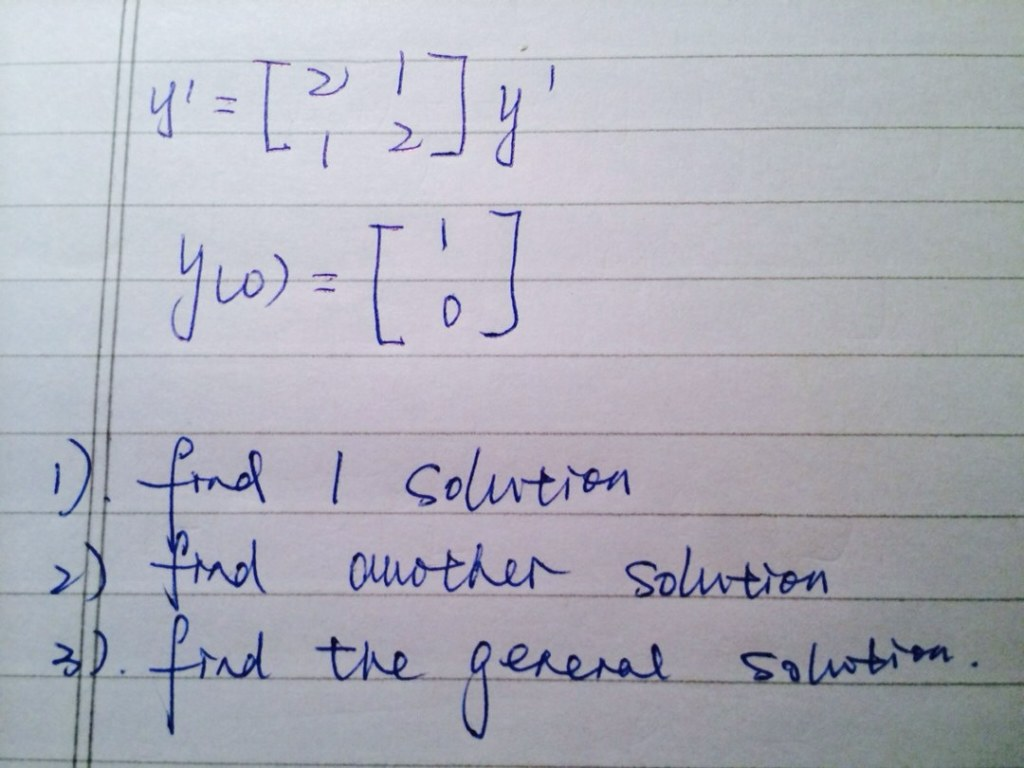 y' = [ 2 1 ] y'
1 2
y(0) = [ 1 ]
0
1). find 1 solution
2) find another solution
3). find the general solution.